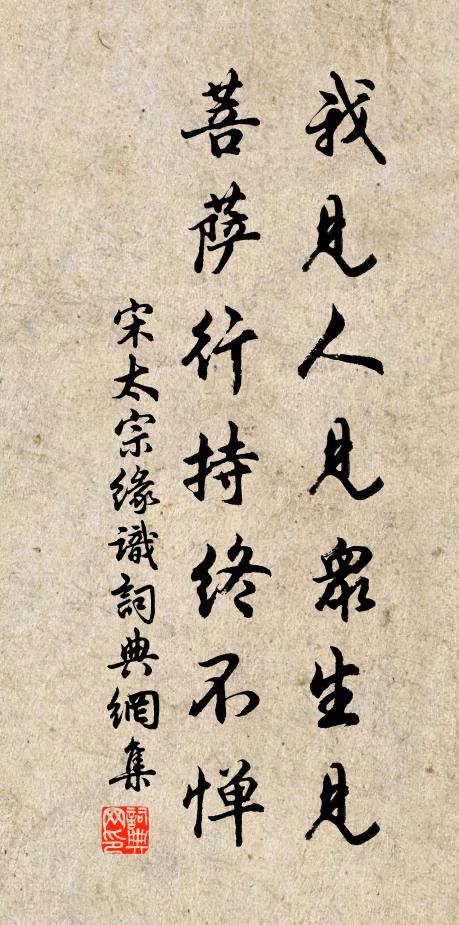 我見人見衆生見
菩薩行持終不憚
宋太宗緣識詞典網集
詞典网印